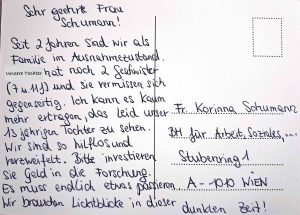 Sehr geehrte Frau
Schumann!
Seit 2 Jahren sind wir als
Familie im Ausnahmezustand.
Unsere Tochter hat noch 2 Geschwister
(7 u. 11J) und sie vermissen sich
gegenseitig. Ich kann es kaum
mehr ertragen, das Leid unser
13 jährigen Tochter zu sehen.
Wir sind so hilflos und
verzweifelt. Bitte investieren
Sie Geld in die Forschung.
Es muss endlich etwas passieren.
Wir brauchen Lichtblicke in dieser
dunklen Zeit!
Fr. Korinna Schumann
BM für Arbeit, Soziales, ...
Stubenring 1
A-1010 WIEN